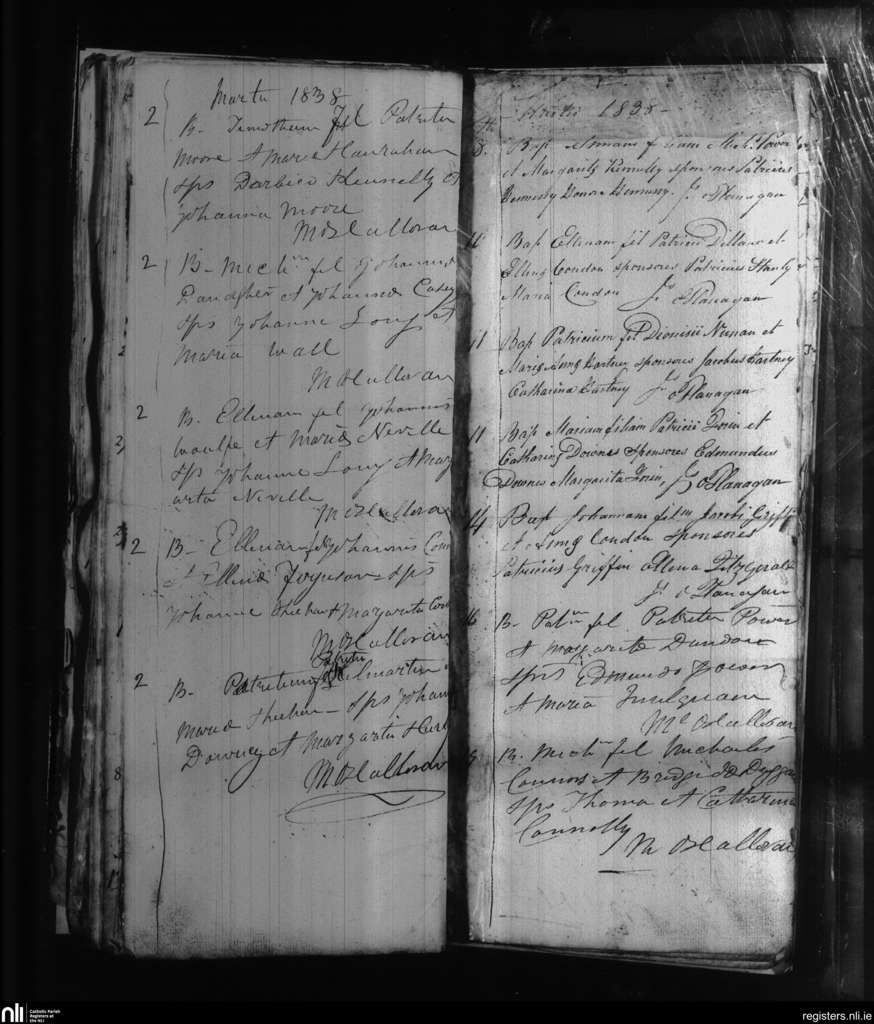 Martii 1838
2 B- Timotheum fil Patritii
Moore & Maria Hanrahan
Sps Darbico Kennelly et
Johanna Moore
M OHalloran
2 B- Mich fil Johannis
Dangher et Johanna Casey
Sps Johanne Long et
Maria Wall
M OHalloran
2 B. Ellenam fil Johannis
Woulfe et Maria Neville
Sps Johanne Long & Marg
arita Neville
M OHalloran
2 B- Ellenam fil Johannis
et Ellena Forguson - Sps
Johanne Sheehan & Margarita
M OHalloran
2 B. Patritium Patritii Kilmartin
Maria Sheehan - Sps Johann
Downey et Margarita
M OHalloran
1838 -
8. Bap Annam filiam Mich. Power
et Margarita Kennelly sponsores Patricius
Hennessy Honora Hennessy. Js OFlanagan
11 Bap Ellenam fil Patricii Dillane et
Ellena Condon sponsores Patricius Hanly &
Maria Condon Js OFlanagan
11 Bap Patricium fil Dionisii Nunan et
Maria Anna Hartney sponsores Jacobus Hartney
Catharina Hartney Js OFlanagan
11 Bap Mariam filiam Patricii et
Catharina Downes sponsores Edmundus
Downes Margarita Js OFlanagan
14 Bap Johannam fil Jacobi Griffin
et Anna Condon sponsores
Patricius Griffin Ellena Fitzgerald
Js OFlanagan
16 B- Pat fil Patritii Power
& Margarita Dundon
Sps Edmundo Power
& Maria
Mc OHalloran
B. Mich fil Michaelis
Connors et Brидgida Duggan
Sps Thoma et Catharina
Connolly
M OHalloran
nli
Catholic Parish
Registers at
the NLI
registers.nli.ie